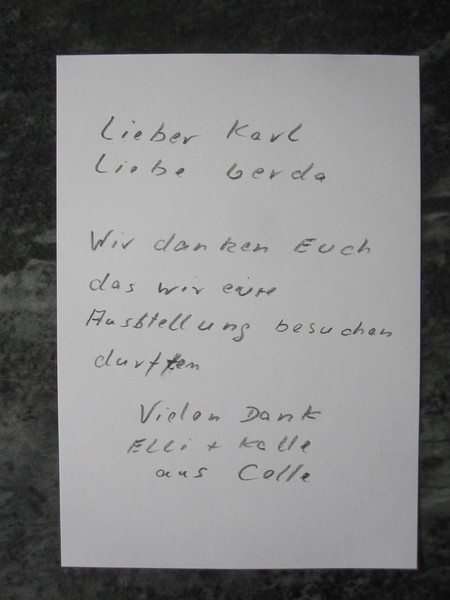 Lieber Karl
Liebe Gerda
Wir danken Euch
das wir eure
Ausstellung besuchen
durften
Vielen Dank
Elli + Kalle
aus Celle